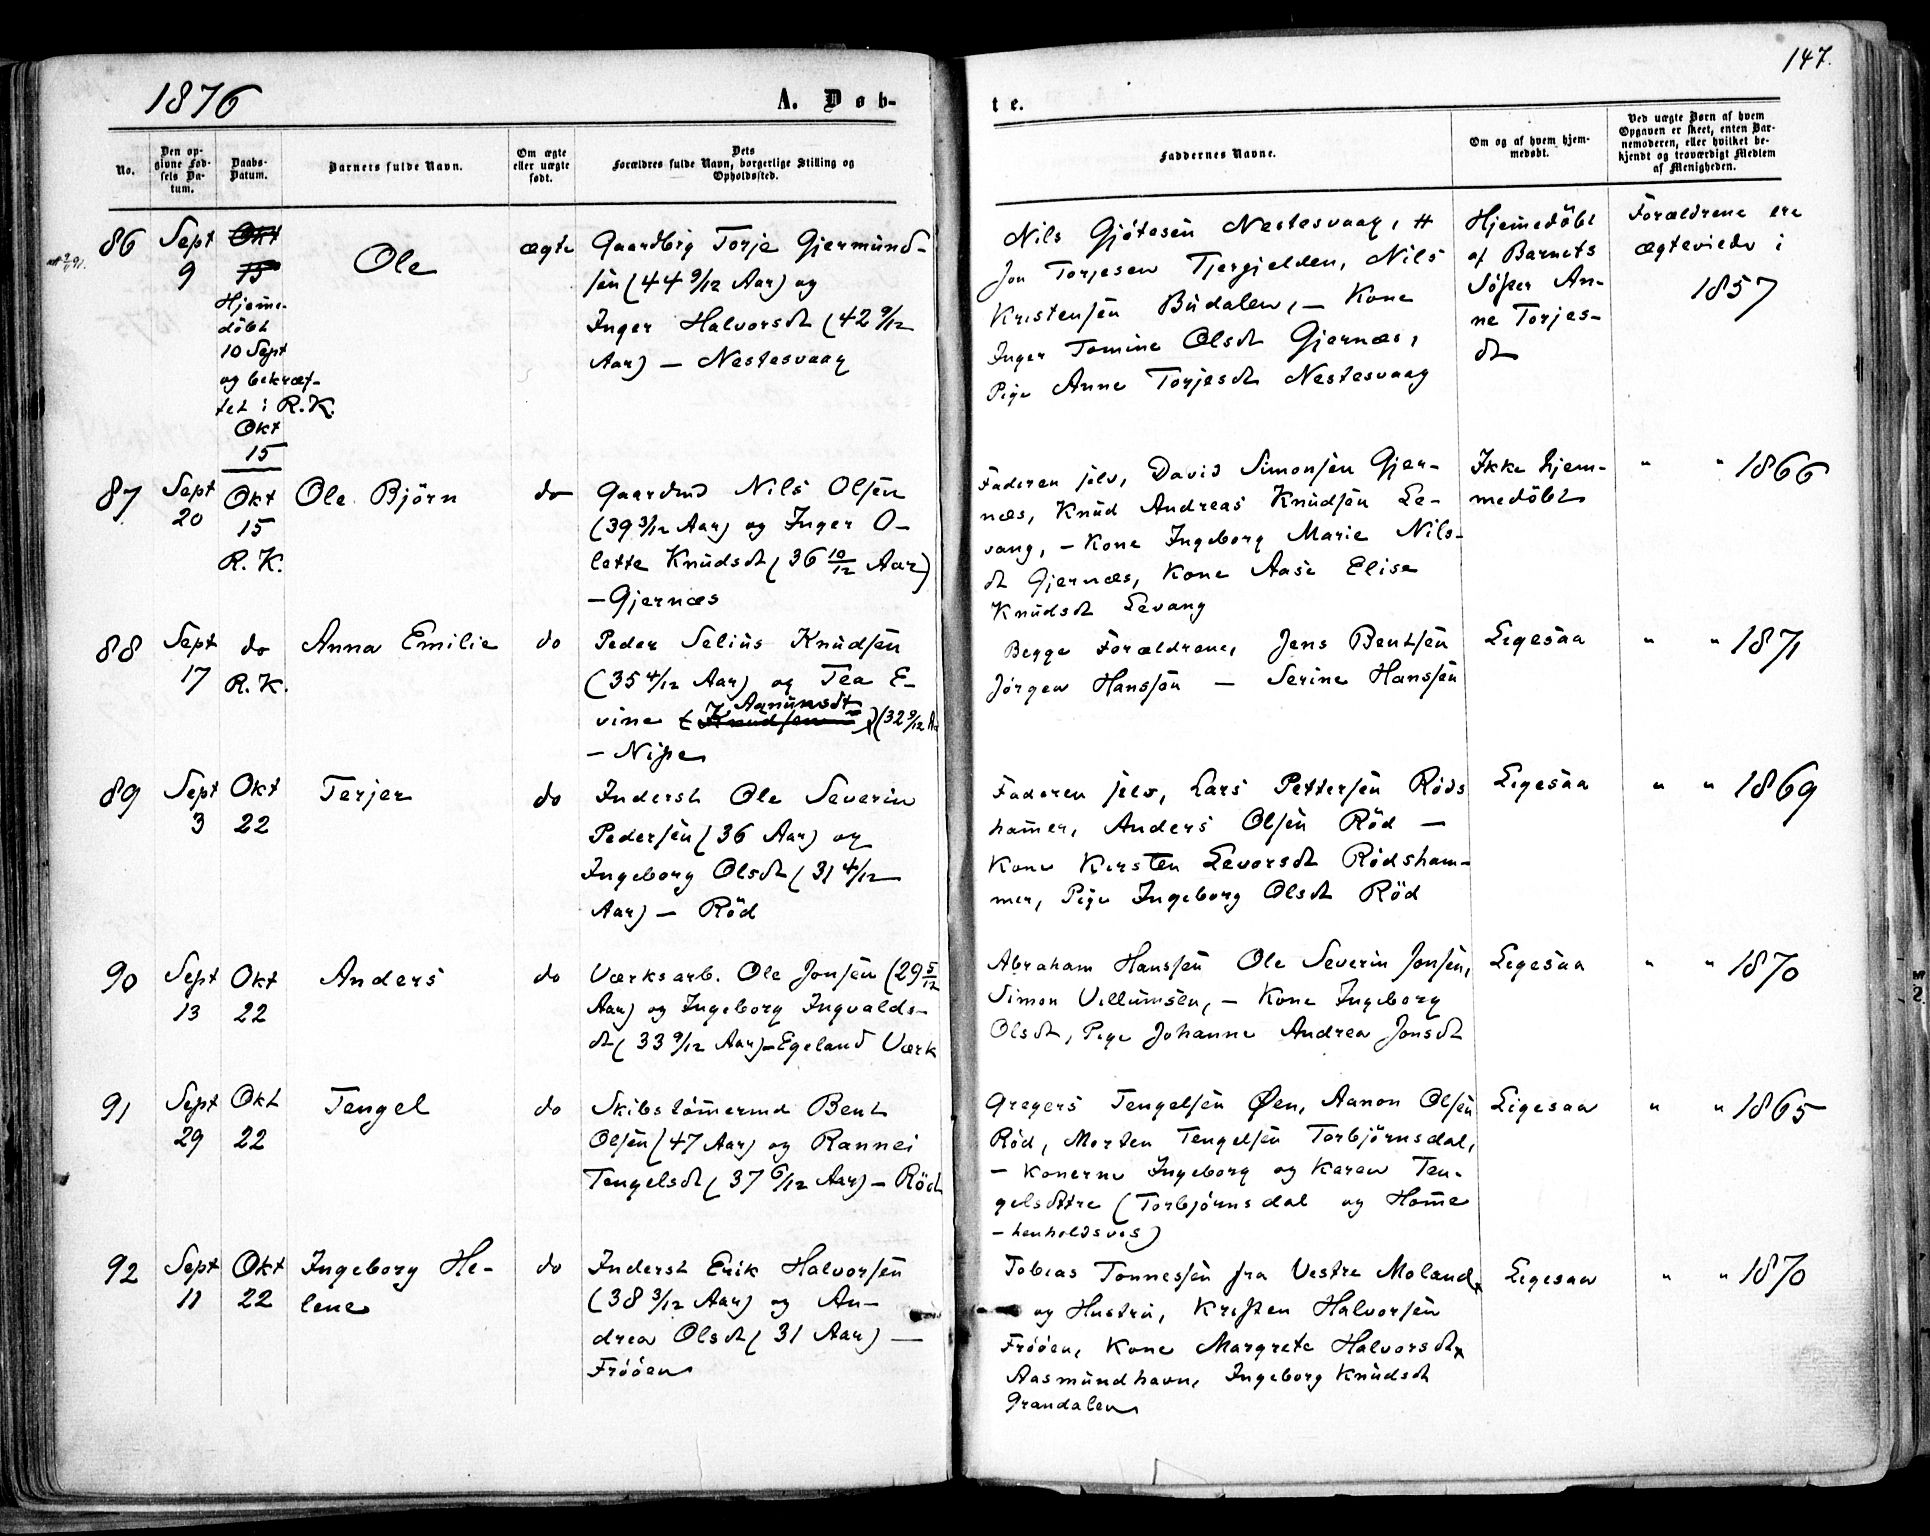 1876
A. Døb-
te.
147.
No.
Den op-
givne Fød-
sels Da-
tum.
Daabs-
Datum.
Barnets fulde Navn.
Om ægte
eller uægte
født.
Dets
Forældres fulde Navn, borgerlige Stilling og
Opholdssted.
Faddernes Navne.
Om og af hvem hjem-
medøbt.
Ved uægte Børn af hvem
Opgaven er skeet, enten Bar-
nemoderen, eller hvilket be-
kjendt og troværdigt Medlem
af Menigheden.
86
Sept
9
Okt
15
Hjeme-
döbt
10 Sept
og bekræf-
tet i R.K.
Okt
15
Ole
ægte
Gaardbrg Torje Gjermund-
sen (44 9/12 Aar) og
Inger Halvorsdt (42 9/12
Aar) — Nestesvaag
Nils Gjötesen Nestesvaag,
Jon Torjesen Tjergjelden, Nils
Kristensen Budalen, — Kone
Inger Tomine Olsdt Gjernæs,
Pige Anne Torjesdt Nestesvaag
Hjemedöbt
af Barnets
Söster An-
ne Torjes-
dt
Forældrene ere
ægteviede i
1857
87
Sept
20
Okt
15
R.K.
Ole Björn
do
Gaardmd Nils Olsen
(39 3/12 Aar) og Inger O-
lette Knudsdt (36 10/12 Aar)
— Gjernæs
Faderen selv, David Simonsen Gjer-
næs, Knud Andreas Knudsen Le-
vang, — Kone Ingeborg Marie Nils-
dt Gjernæs, Kone Aase Elise
Knudsdt Levang
Ikke hjem-
medöbt
" " 1866
88
Sept
17
do
R.K.
Anna Emilie
do
Peder Selius Knudsen
(35 4/12 Aar) og Tea E-
Aanunsdt
vine (Knudsen) (32 9/12 Aa
— Nipe
Begge Forældrene, Jens Bentsen
Jörgen Hanssen — Serine Hanssen
Ligesaa
" " 1871
89
Sept
3
Okt
22
Terjer
do
Inderst Ole Severin
Pedersen (36 Aar) og
Ingeborg Olsdt (31 4/12
Aar) — Röd
Faderen selv, Lars Pettersen Röds
hamer, Anders Olsen Röd —
Kone Kirsten Levorsdt Rödsham-
mer, Pige Ingeborg Olsdt Röd
Ligesaa
" " 1869
90
Sept
13
Okt
22
Anders
do
Værksarb. Ole Jonsen (29 5/12
Aar) og Ingeborg Ingvalds-
dt (33 9/12 Aar) — Egeland Værk
Abraham Hanssen Ole Severin Jonsen,
Simon Villumsen, — Kone Ingeborg
Olsdt, Pige Johanne Andrea Jonsdt
Ligesaa
" " 1870
91
Sept
29
Okt
22
Tengel
do
Skibstömermd Bent
Olsen (47 Aar) og Rannei
Tengelsdt (37 6/12 Aar) — Röd
Gregers Tengelsen Øen, Aanon Olsen
Röd, Morten Tengelsen Torbjörnsdal,
— Konerne Ingeborg og Karen Ten-
gelsdttre (Torbjörnsdal og Home
— henholdsvis)
Ligesaa
" " 1865
92
Sept
11
Okt
22
Ingeborg He-
lene
do
Inderst Erik Halvorsen
(38 3/12 Aar) og An-
drea Olsdt (31 Aar) —
Frööen
Tobias Tonnessen fra Vestre Moland
og Hustru, Kristen Halvorsen
Fröøen, Kone Margrete Halvorsdt
Aasmundhavn, Ingeborg Knudsdt
Grandalen
Ligesaa
" " 1870